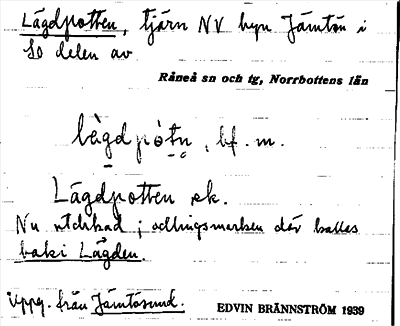 Lägdpotten, tjärn NV byn Jämtön i
SO delen av
Råneå sn och tg, Norrbottens län
lägdpòtn, bf. m.
Lägdpotten sk.
Nu utdikad; odlingsmarken där kallas
baki Lägden.
Uppg. från Jämtösund.
EDVIN BRÄNNSTRÖM 1939